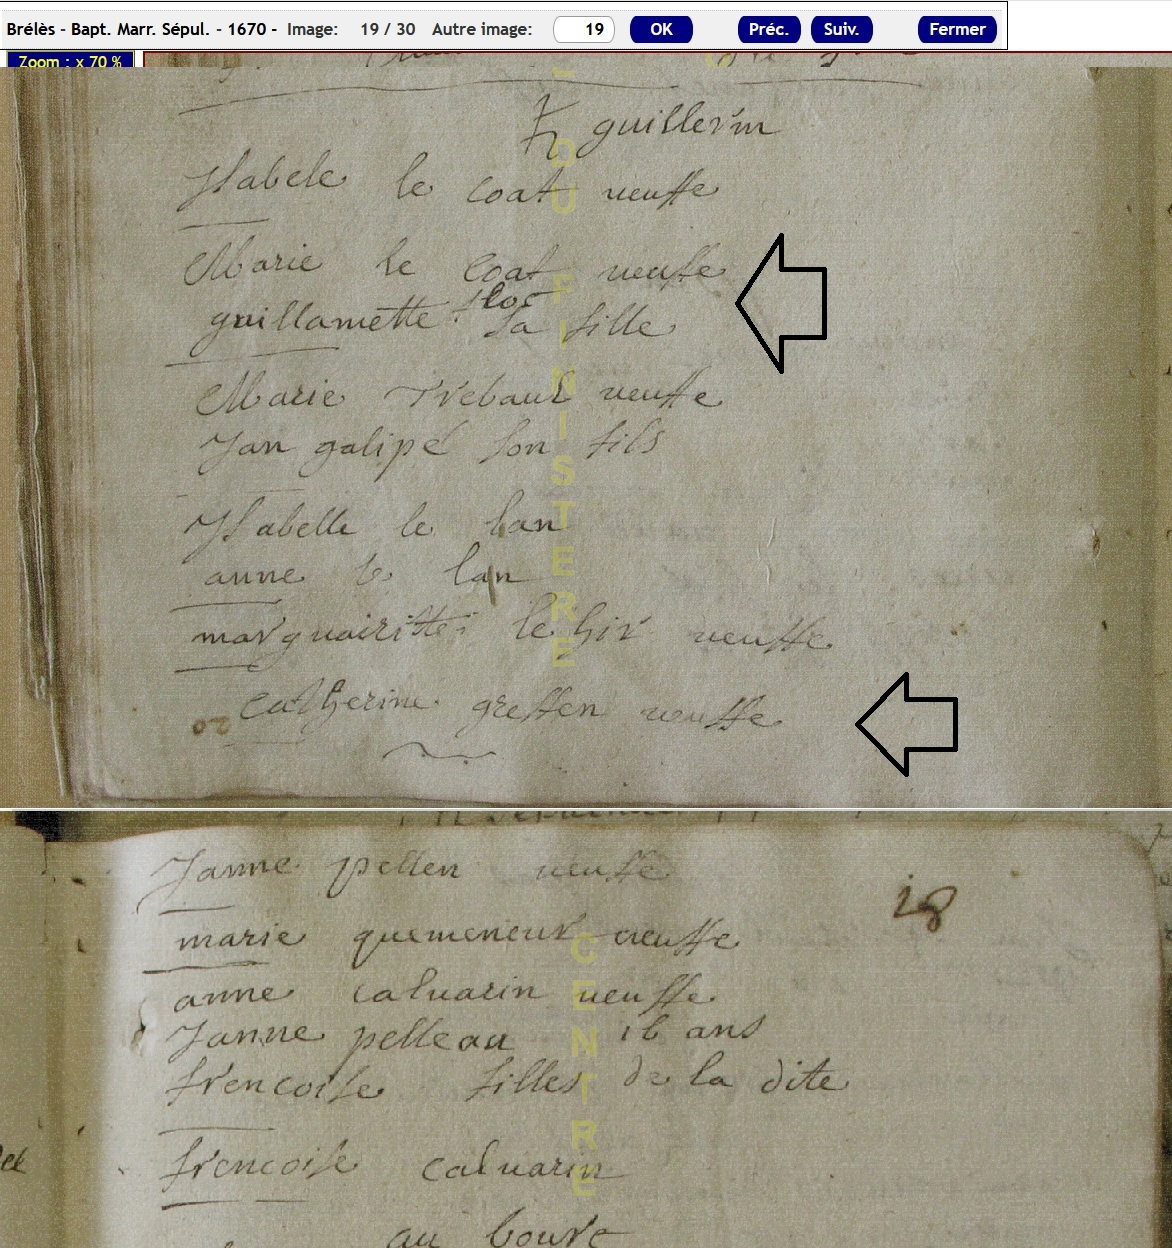 Brélès - Bapt. Marr. Sépul. - 1670 - Image: 19 / 30 Autre image: 19 OK Préc. Suiv. Fermer
Zoom : x 70 %
guillerm
Ysabele le coat veuffe
Marie le Coat veuffe
guillamette sa fille
Marie Trebaul veuffe
Jan galipe son fils
Ysabelle le lan
anne le lan
marguairitte le hir veuffe
catherine greffen veuffe
20
Janne pellen veuffe
18
marie quemeneur veuffe
anne caluarin veuffe
Janne pelleau 16 ans
frencoise filles de la dite
frencoise caluarin
au bourc
CENTRE
DU FINISTERE